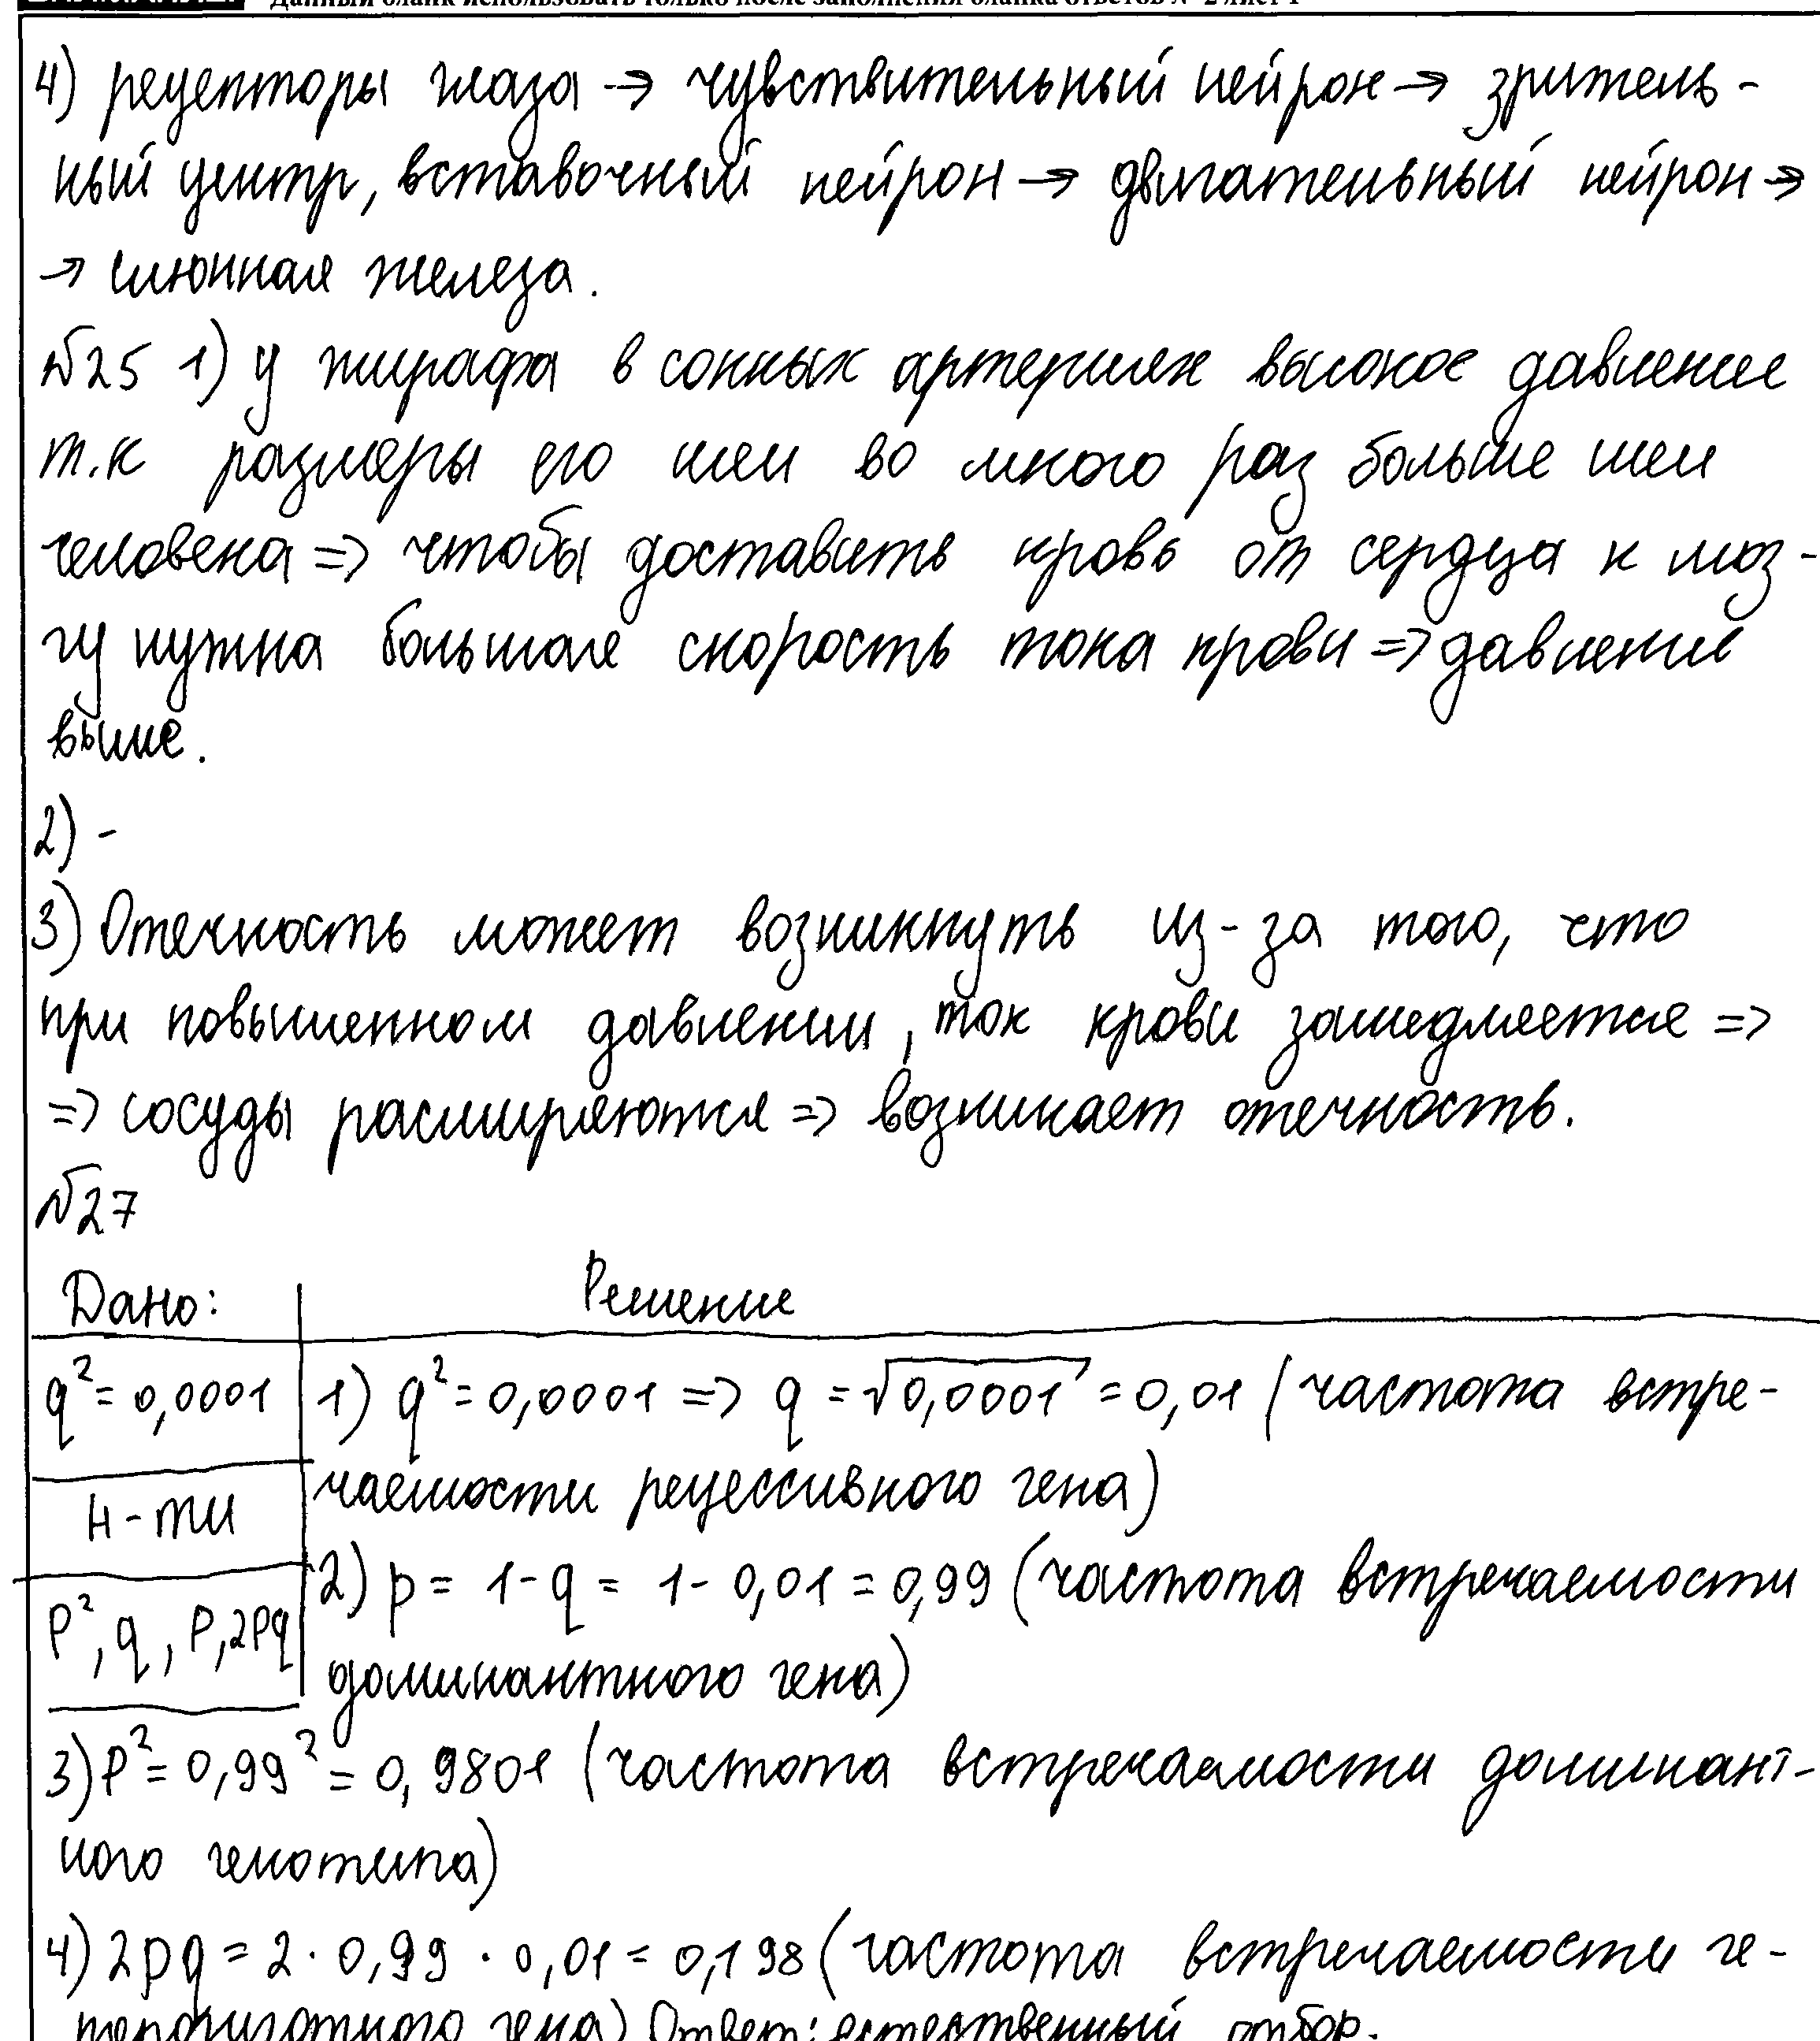 Данный бланк использовать только после заполнения бланка ответов № 2 лист 1
4) рецепторы глаза → чувствительный нейрон → зритель-
ный центр, вставочный нейрон → двигательный нейрон →
→ слюнная железа.
№25 1) у жирафа в сонных артериях высокое давление
т.к размеры его шеи во много раз больше шеи
человека => чтобы доставить кровь от сердца к моз-
гу нужна большая скорость тока крови => давление
выше.
2) -
3) Отечность может возникнуть из-за того, что
при повышенном давлении, ток крови замедляется =>
=> сосуды расширяются => возникает отечность.
№27
Дано: Решение
q² = 0,0001 1) q² = 0,0001 => q = √0,0001 = 0,01 (частота встре-
Н-ти чаемости рецессивного гена)
p², q, p, 2pq 2) p = 1 - q = 1 - 0,01 = 0,99 (частота встречаемости
доминантного гена)
3) p² = 0,99² = 0,9801 (частота встречаемости доминант-
ного генотипа)
4) 2pq = 2 · 0,99 · 0,01 = 0,198 (частота встречаемости ге-
терозиготного гена) Ответ: естественный отбор.